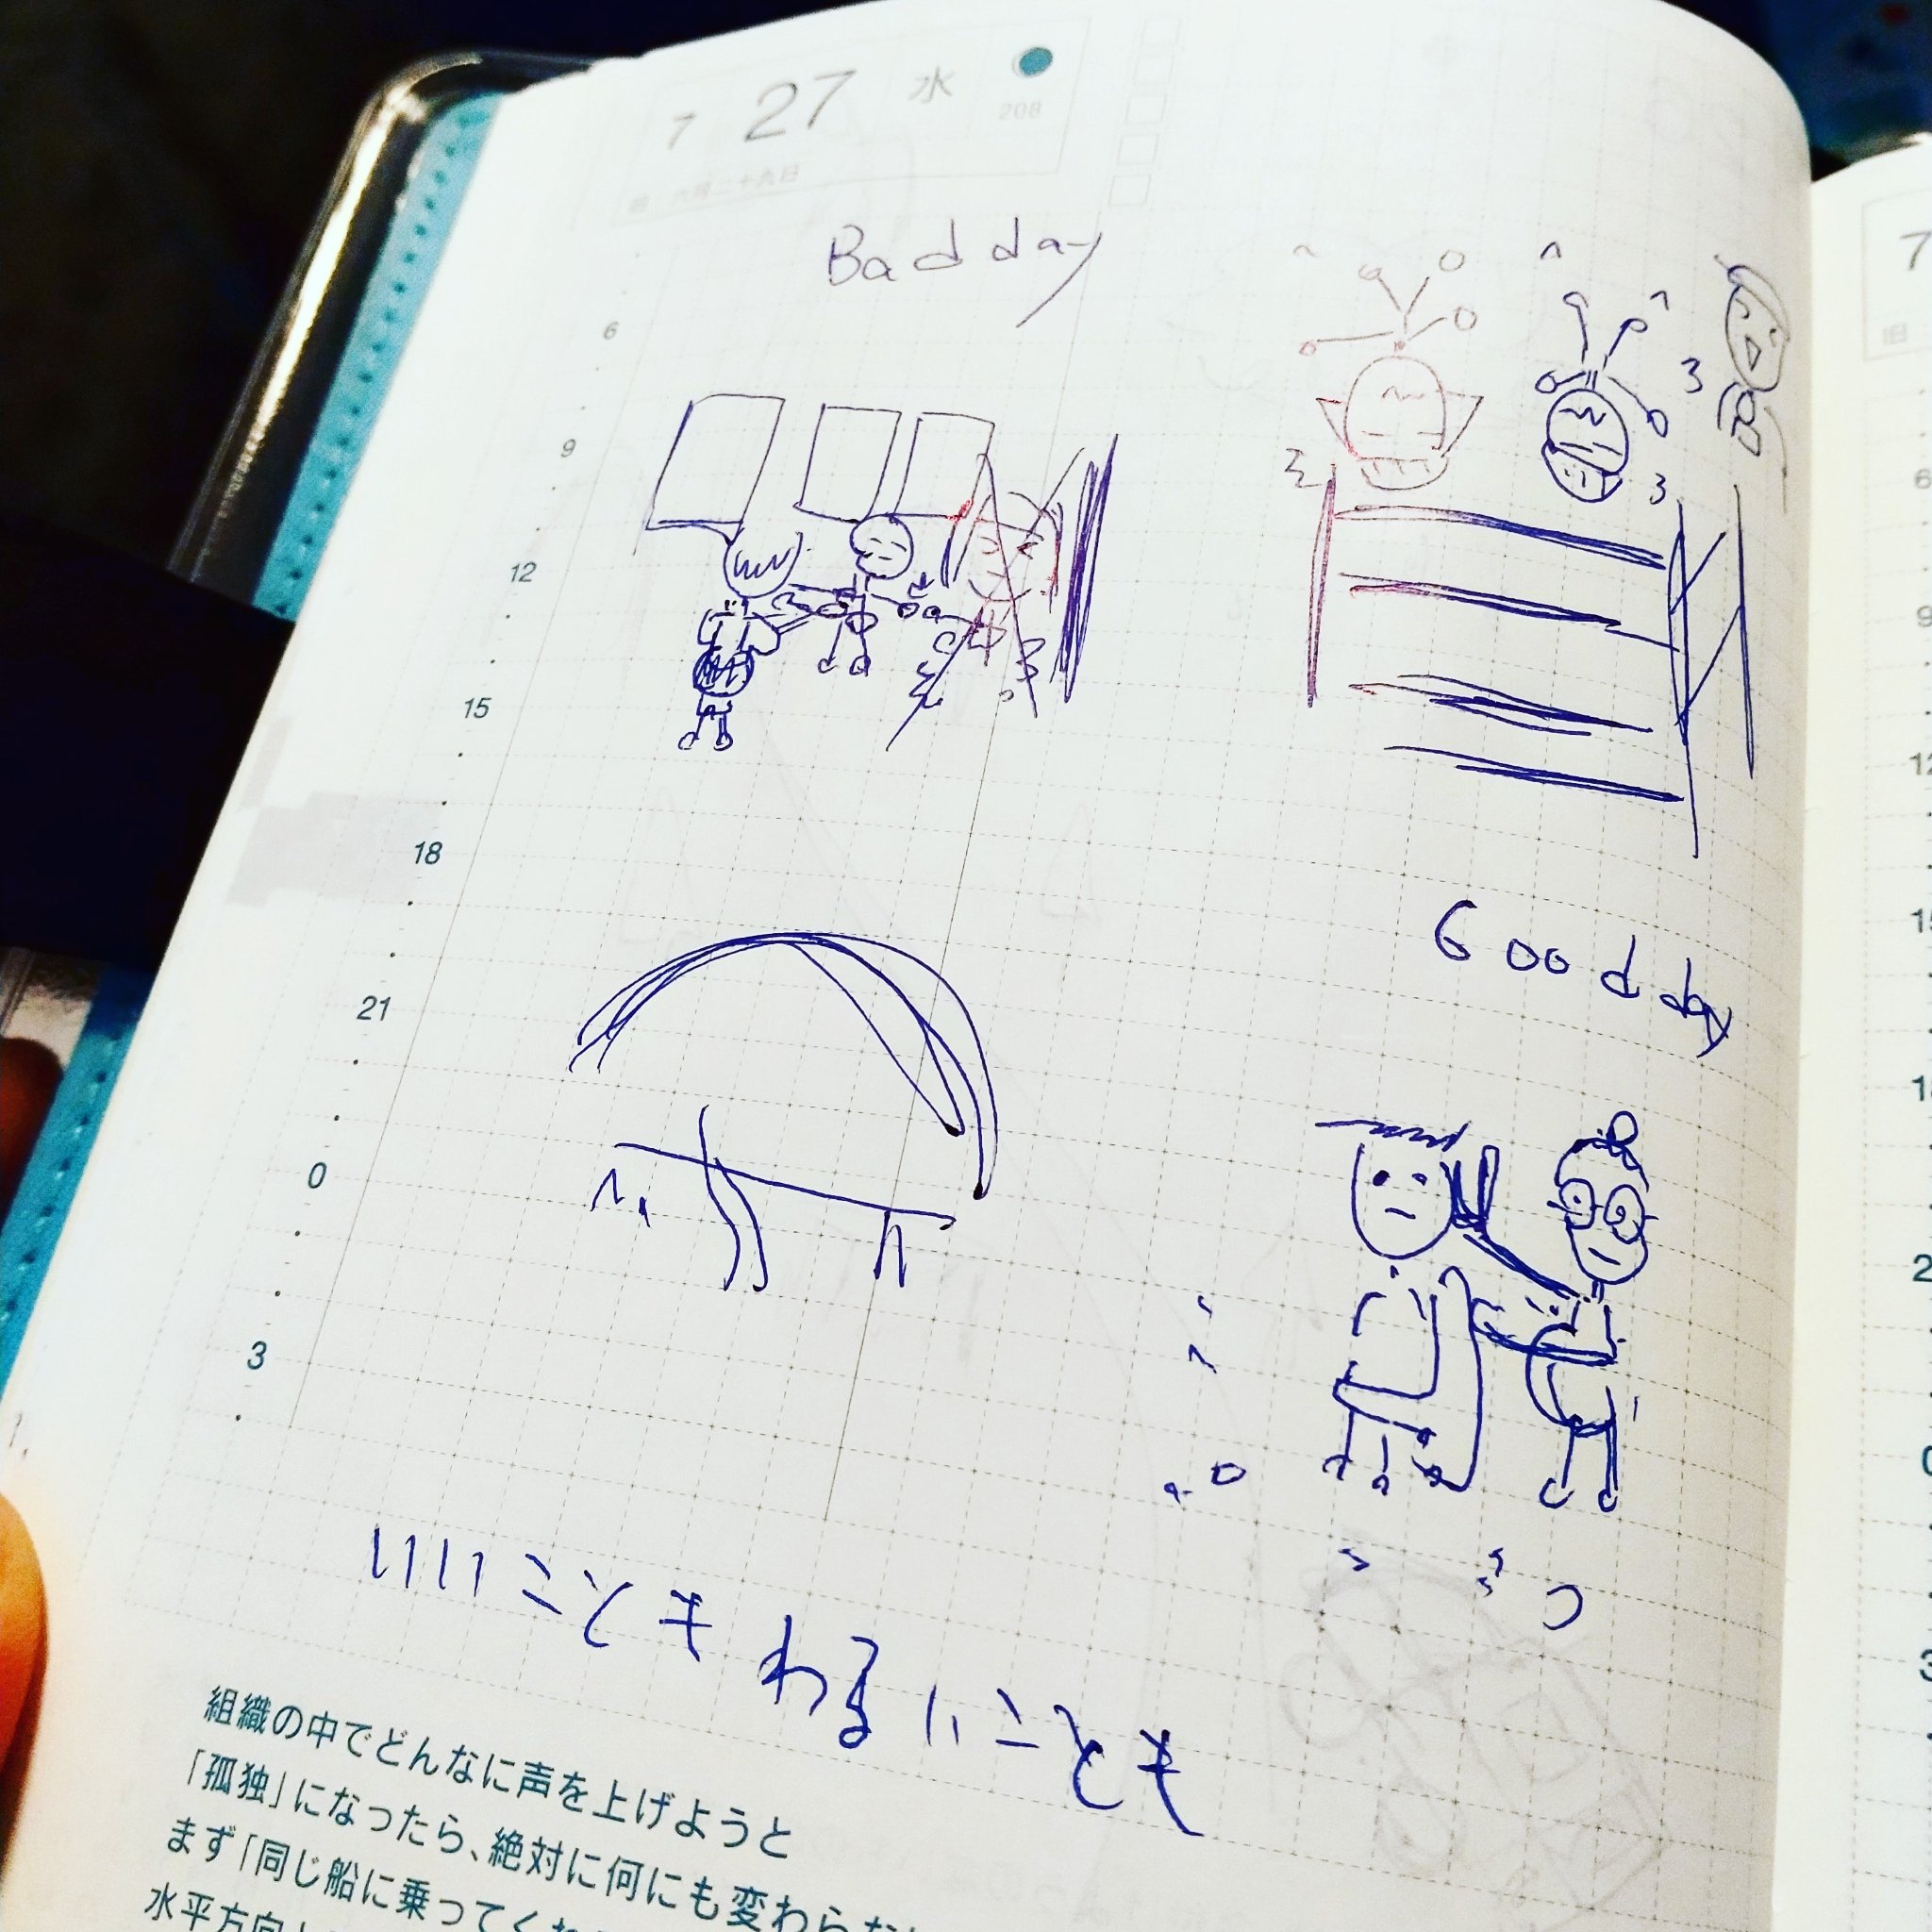 7 27 水
208
旧：六月二十九日
Bad day
6
9
12
15
18
21
0
3
Good day
いいことも わるいことも
組織の中でどんなに声を上げようと
「孤独」になったら、絶対に何にも変わらない
まず「同じ船に乗ってくれ
水平方向
7
旧
6
9
12